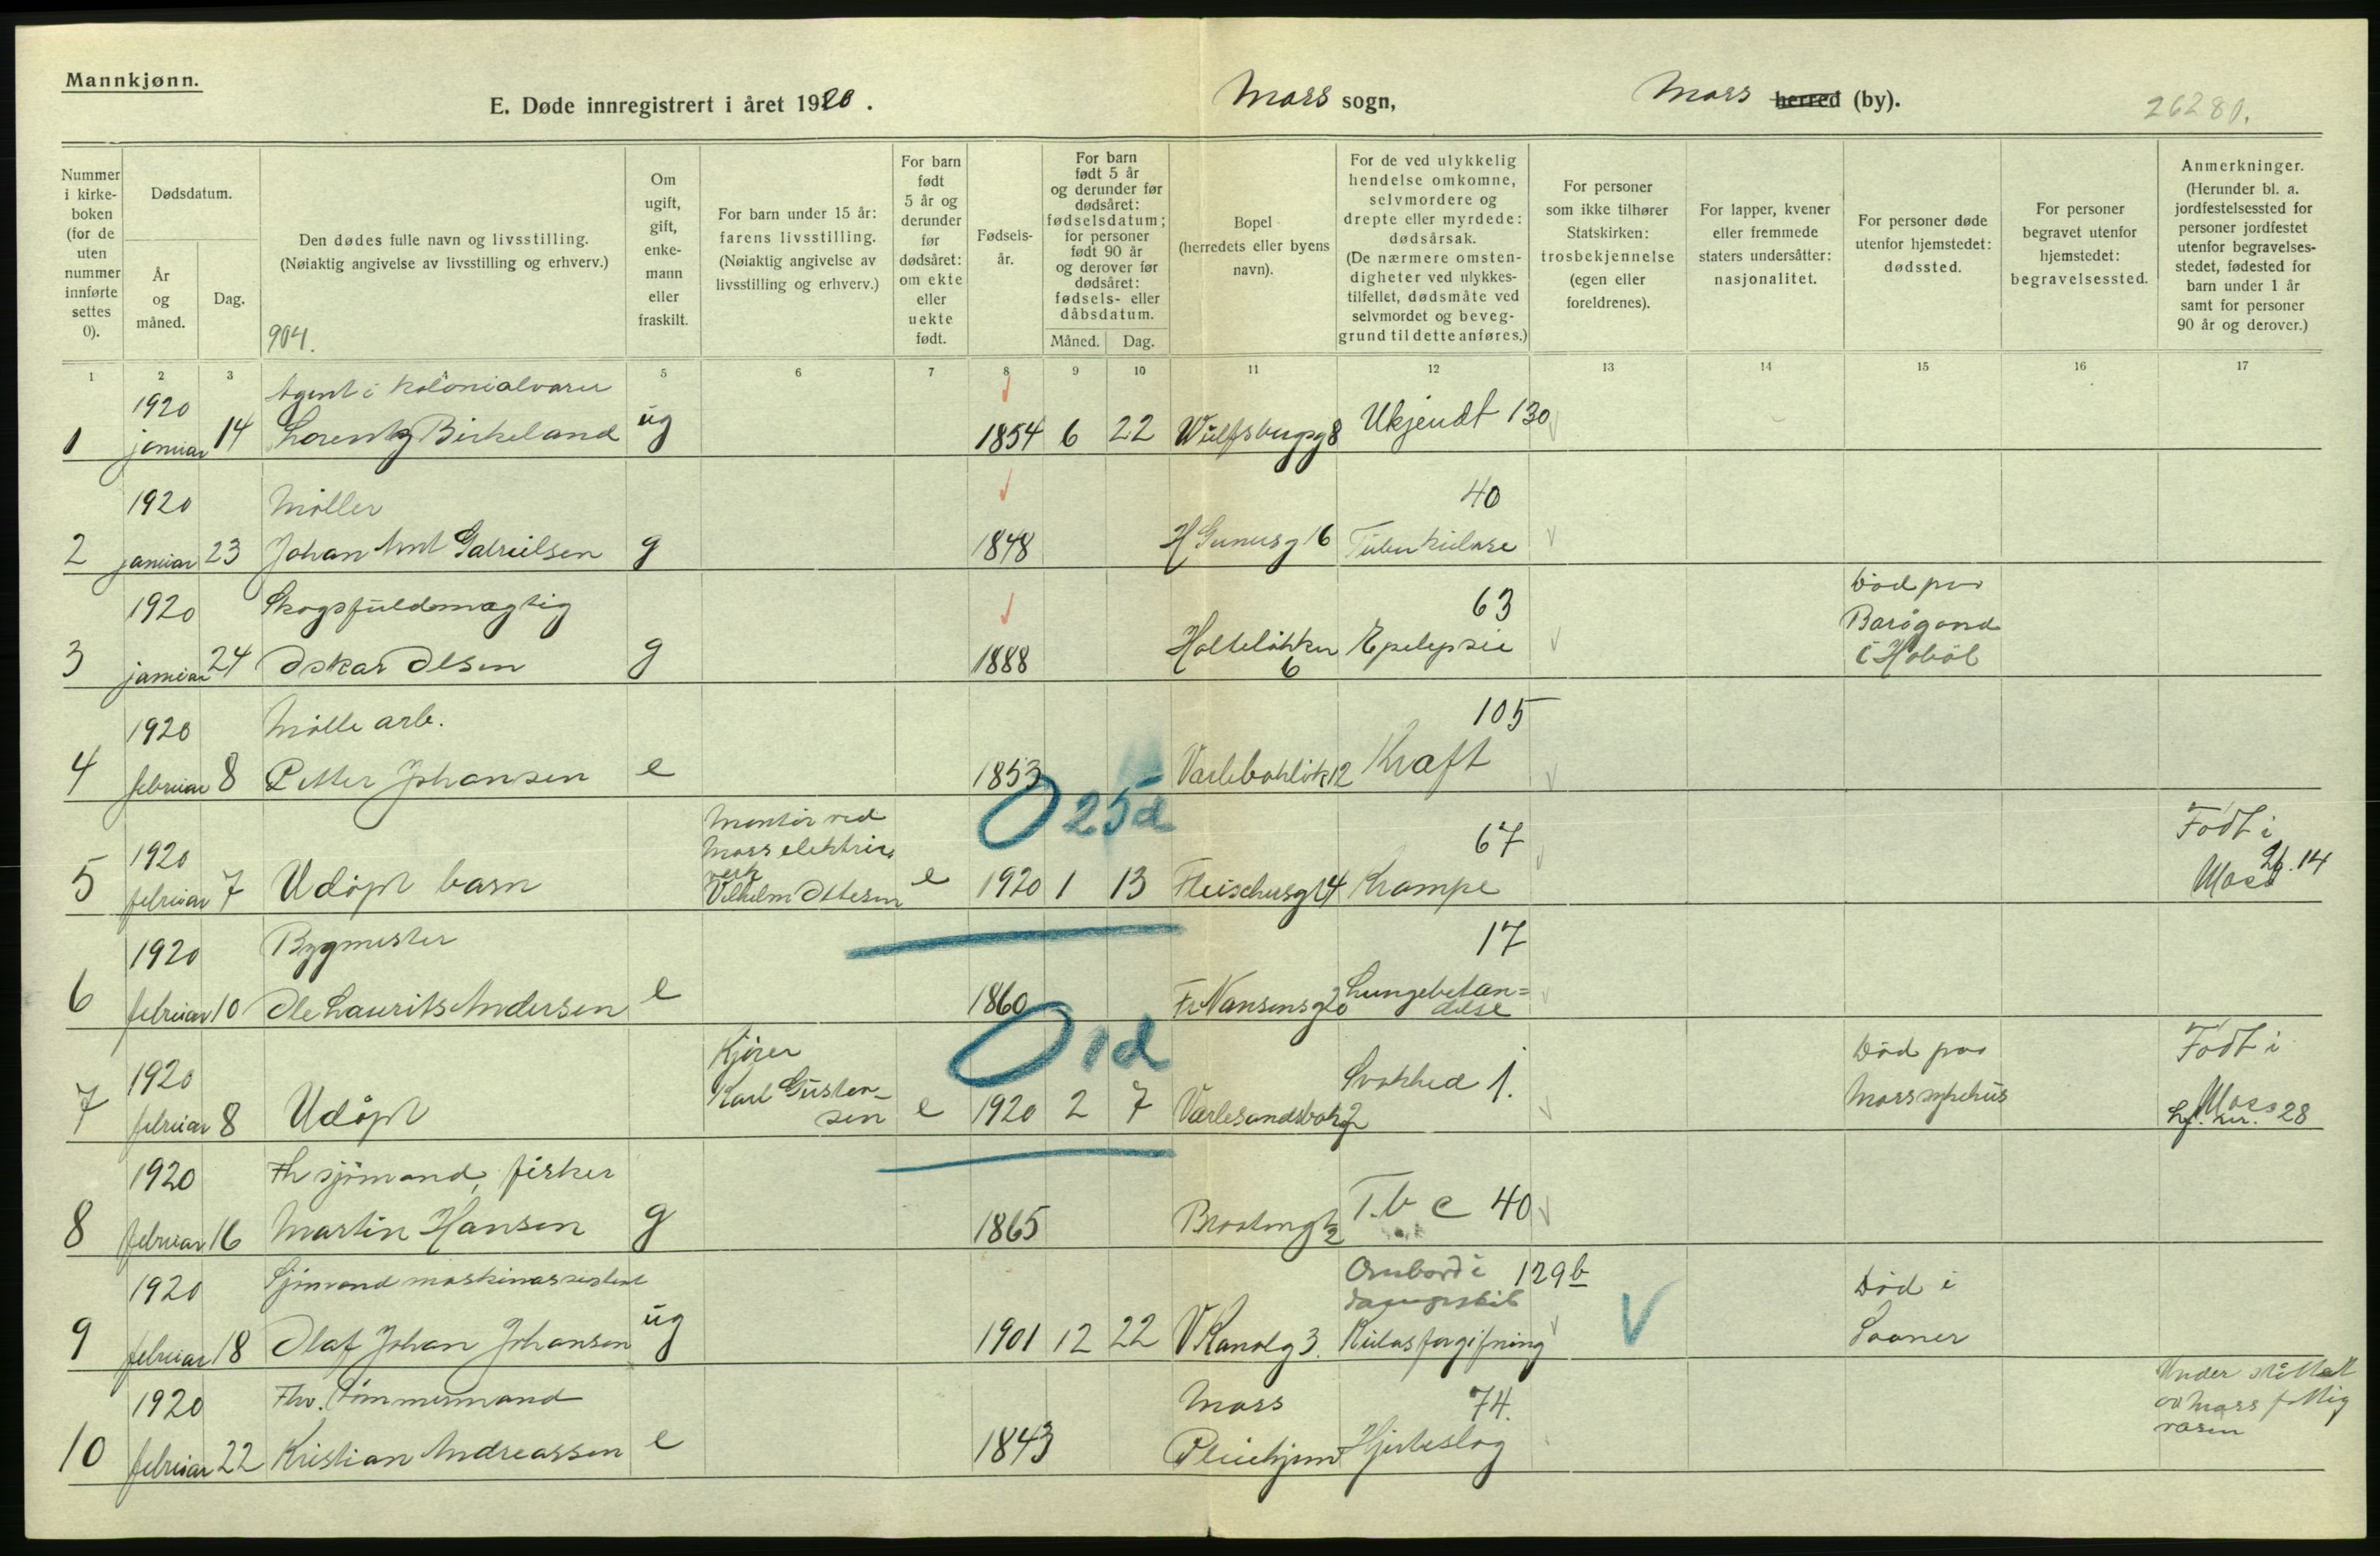 Mannkjønn.
E. Døde innregistrert i året 1920.
Moss sogn,
Moss herred (by).
26280.
Nummer i kirke-boken (for de uten nummer innførte settes 0).
Dødsdatum.
År og måned.
Dag.
Den dødes fulle navn og livsstilling.
(Nøiaktig angivelse av livsstilling og erhverv.)
904.
Om ugift, gift, enke-mann eller fraskilt.
For barn under 15 år: farens livsstilling.
(Nøiaktig angivelse av livsstilling og erhverv.)
For barn født 5 år og derunder før dødsåret: om ekte eller uekte født.
Fødsels-år.
For barn født 5 år og derunder før dødsåret: fødselsdatum; for personer født 90 år og derover før dødsåret: fødsels- eller dåbsdatum.
Måned. Dag.
Bopel (herredets eller byens navn).
For de ved ulykkelig hendelse omkomne, selvmordere og drepte eller myrdede: dødsårsak.
(De nærmere omsten-digheter ved ulykkes-tilfellet, dødsmåte ved selvmordet og beveg-grund til dette anføres.)
For personer som ikke tilhører Statskirken: trosbekjennelse (egen eller foreldrenes).
For lapper, kvener eller fremmede staters undersåtter: nasjonalitet.
For personer døde utenfor hjemstedet: dødssted.
For personer begravet utenfor hjemstedet: begravelsessted.
Anmerkninger.
(Herunder bl. a. jordfestelsessted for personer jordfestet utenfor begravelses-stedet, fødested for barn under 1 år samt for personer 90 år og derover.)
1 2 3 5 6 7 8 9 10 11 12 13 14 15 16 17
1920 Agent i kolonialvarer
1 januar 14 Lorentz Birkeland ug 1854 6 22 Wulfsbergsg 8 Ukjendt 130
1920 Møller 40
2 januar 23 Johan Ant Gabrielsen g 1848 H Gunusg 16 Tuberkulose
1920 Skogsfuldmægtig 63 Død paa
Barøgand
3 januar 24 Oskar Olsen g 1888 Holteløkken 6 Epelepsie i Hobøl
1920 Mølle arb. 105
4 februar 8 Petter Johansen e 1853 Varlebakkik 12 Kraft
0 25d
Montør ved
Moss elektris.
verk
1920 67 Født i
5 februar 7 Udøpt barn Vilhelm Ottesen e 1920 1 13 Fleischersg 14 Krampe Moss 14
1920 Bygmester 17
6 februar 10 Ole Laurits Andersen e 1860 Fr Nansensg 20 Lungebetæn=
delse
0 1d
1920 Kjører Svakhed 1. Død paa Født i
7 februar 8 Udøpt Karl Gustav-
sen e 1920 2 7 Varlesandsbak 2 Moss sykehus Moss
28
1920 Fh sjømand, fisker
8 februar 16 Martin Hansen g 1865 T.b c 40
1920 Sjømand maskinassistent Ombord i 129b Død i
dampskib
9 februar 18 Olaf Johan Johansen ug 1901 12 22 V Kanalg 3. Kulosforgifning Sooner
1920 Fhv. Tømmermand Moss 74. Understøttet
av Moss fattig
væsen
10 februar 22 Kristian Andreassen e 1843 Pleiehjem Hjerteslag